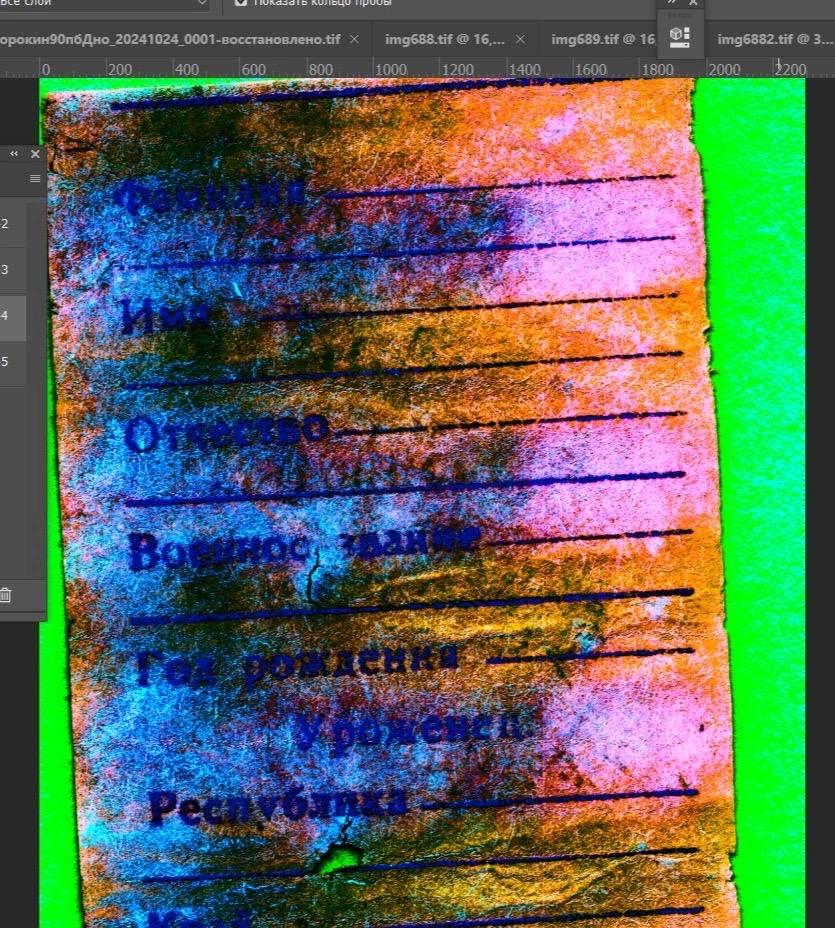 Все слои
Показать кольцо пробы
орокин90пбДно_20241024_0001-восстановлено.tif × img688.tif @ 16,... × img689.tif @ 16 img6882.tif @ 3...
0 200 400 600 800 1000 1200 1400 1600 1800 2000 2200
2
3
4
5
Фамилия
Имя
Отчество
Военное звание
Год рождения
Уроженец:
Республика
Край